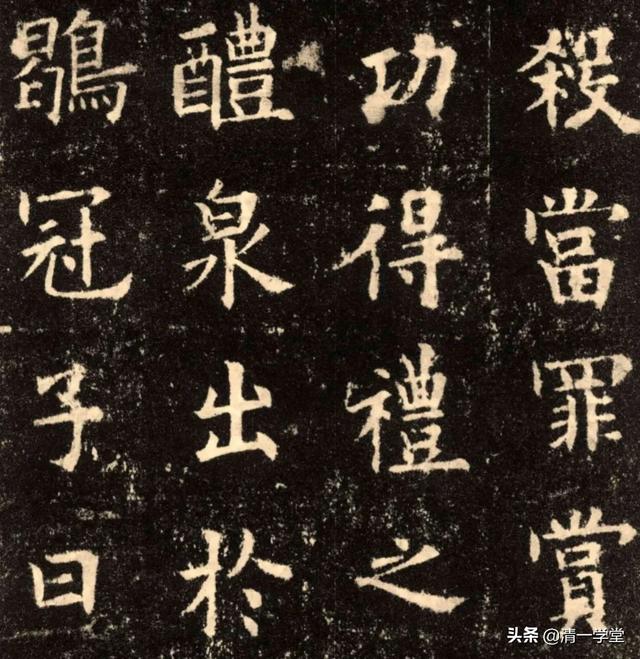 殺當罪賞
功得禮之
醴泉出於
鶡冠子曰
头条 @清一学堂